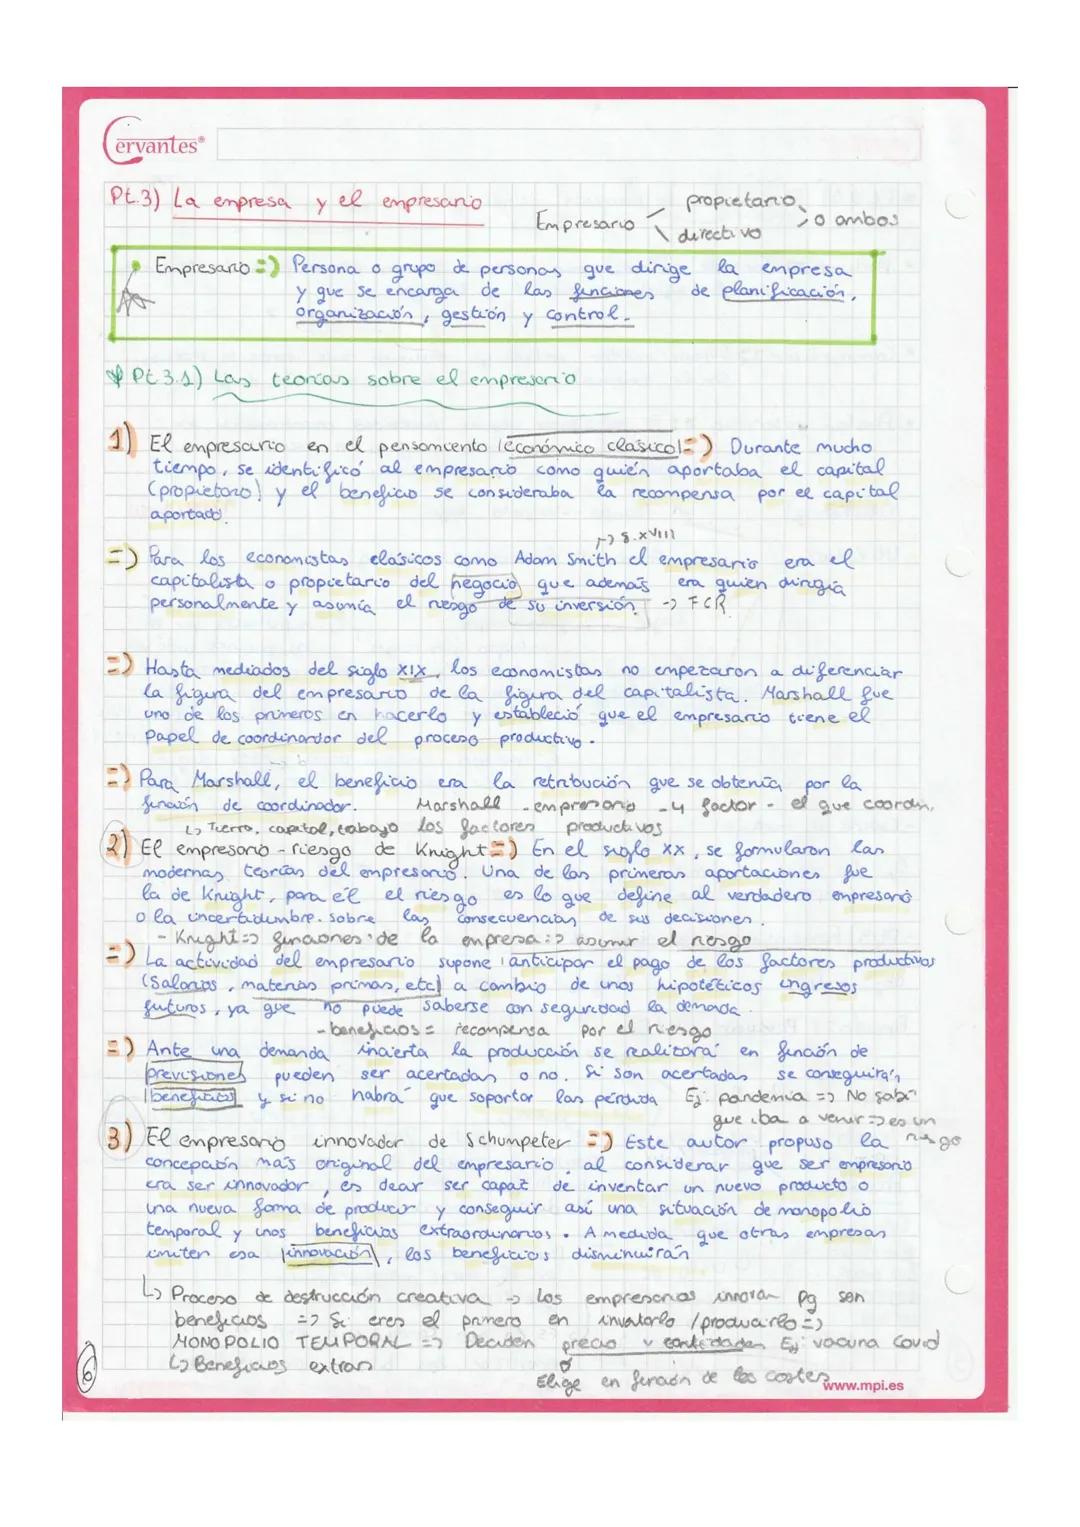 Cervantes®
Pt.3) La empresa y el empresario
propietario
Empresario
o ambos
directivo
Empresario => Persona o grupo de personas que dirige la empresa
y que se encarga de las funciones de planificación,
organización, gestión y control.
Pt 3.1) Las teorías sobre el empresario
1) El empresario en el pensamiento económico clásico => Durante mucho
tiempo, se identificó al empresario como quién aportaba el capital
(propietario) y el beneficio se consideraba la recompensa por el capital
aportado.
-> S. XVIII
=> Para los economistas clásicos como Adam Smith el empresario era el
capitalista o propietario del negocio que además era quien dirigía
personalmente y asumía el riesgo de su inversión. -> FCR
=> Hasta mediados del siglo XIX, los economistas no empezaron a diferenciar
la figura del empresario de la figura del capitalista. Marshall fue
uno de los primeros en hacerlo y estableció que el empresario tiene el
papel de coordinardor del proceso productivo.
=> Para Marshall, el beneficio era la retribución que se obtenía por la
función de coordinador. Marshall - empresario - 4 factor - el que coordin.
-> Tierra, capital, trabajo los factores productivos
2) El empresario - riesgo de Knight => En el siglo XX, se formularon las
modernas teorías del empresario. Una de las primeras aportaciones fue
la de Knight, para él el riesgo es lo que define al verdadero empresario
o la incertidumbre sobre las consecuencias de sus decisiones.
- Knight => funciones de la empresa => asumir el riesgo
=> La actividad del empresario supone anticipar el pago de los factores productivos
(Salarios, materias primas, etc) a cambio de unos hipotéticos ingresos
futuros, ya que no puede saberse con seguridad la demada.
- beneficios = recompensa por el riesgo
=> Ante una demanda incierta la producción se realizará en función de
previsiones pueden ser acertadas o no. Si son acertadas se conseguirán
beneficios y si no habrá que soportar las pérdida Ej: pandemia => No sabí
que iba a venir => es un
riesgo
3) El empresario innovador de Schumpeter => Este autor propuso la
concepción más original del empresario, al considerar que ser empresario
era ser innovador, es dear ser capaz de inventar un nuevo producto o
una nueva forma de producir y conseguir así una situación de monopolio
temporal y unos beneficios extraordinarios. A medida que otras empresas
imiten esa innovación, los beneficios disminuirán
-> Proceso de destrucción creativa -> Los empresarios innovan pq son
beneficios => Si eres el primero en invatarlo / producirlo =>
MONOPOLIO TEMPORAL => Deciden precio y cantidades Ej: vacuna Covid
-> Beneficios extran
Elige en función de los costes
6
www.mpi.es